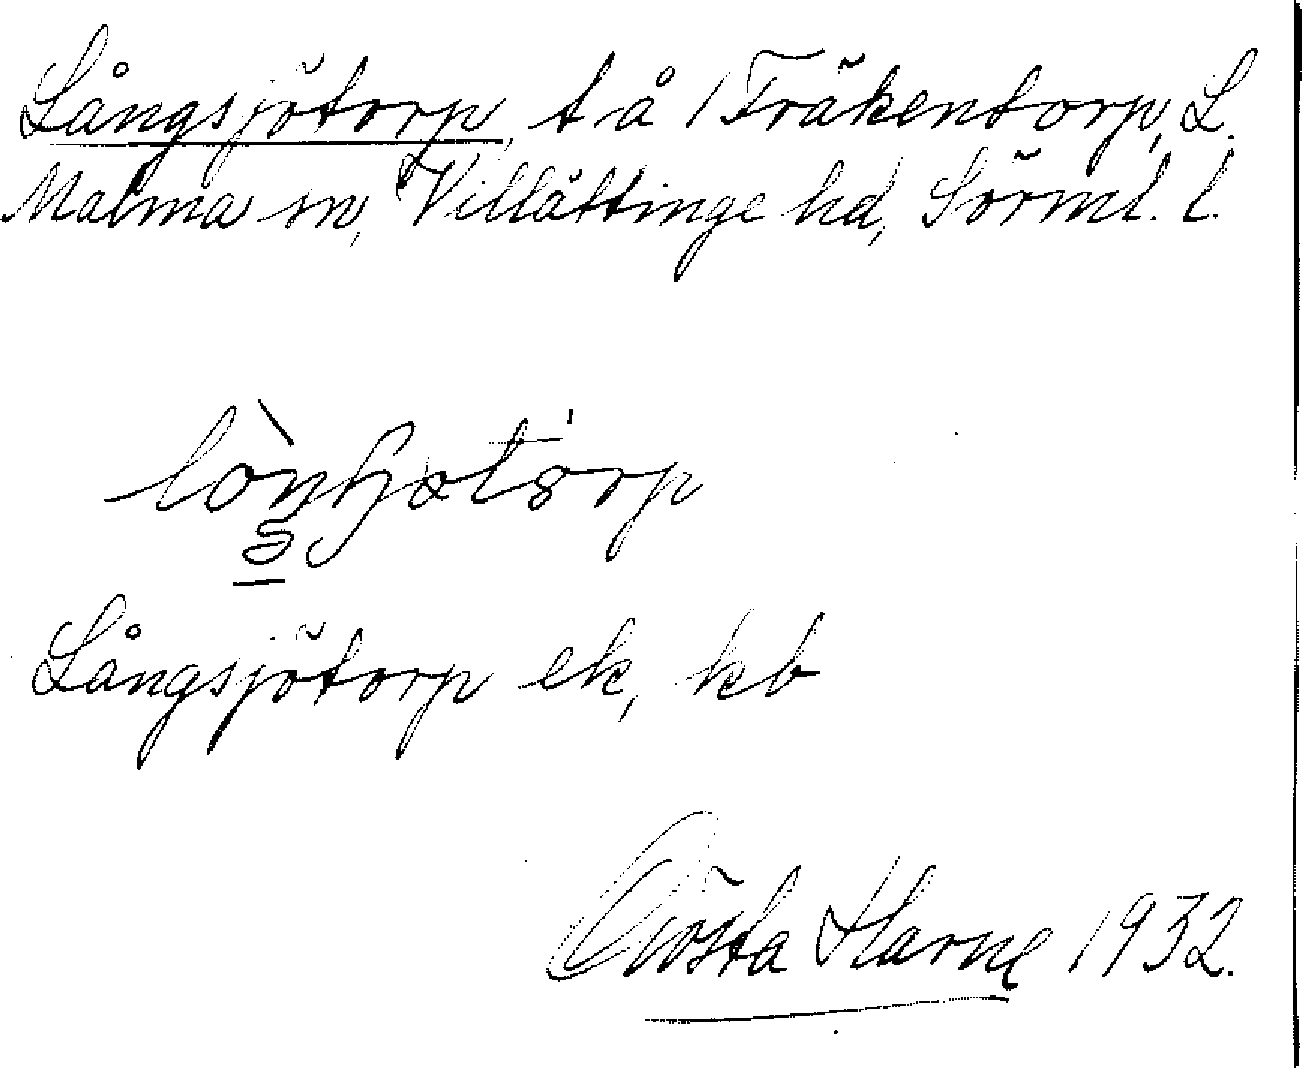 Långsjötorp, t å 1 Fräkentorp, L.
Malma sn, Villåttinge hd, Sörml. l.
Långsjötorp ek, kb
Gösta Harne 1932.